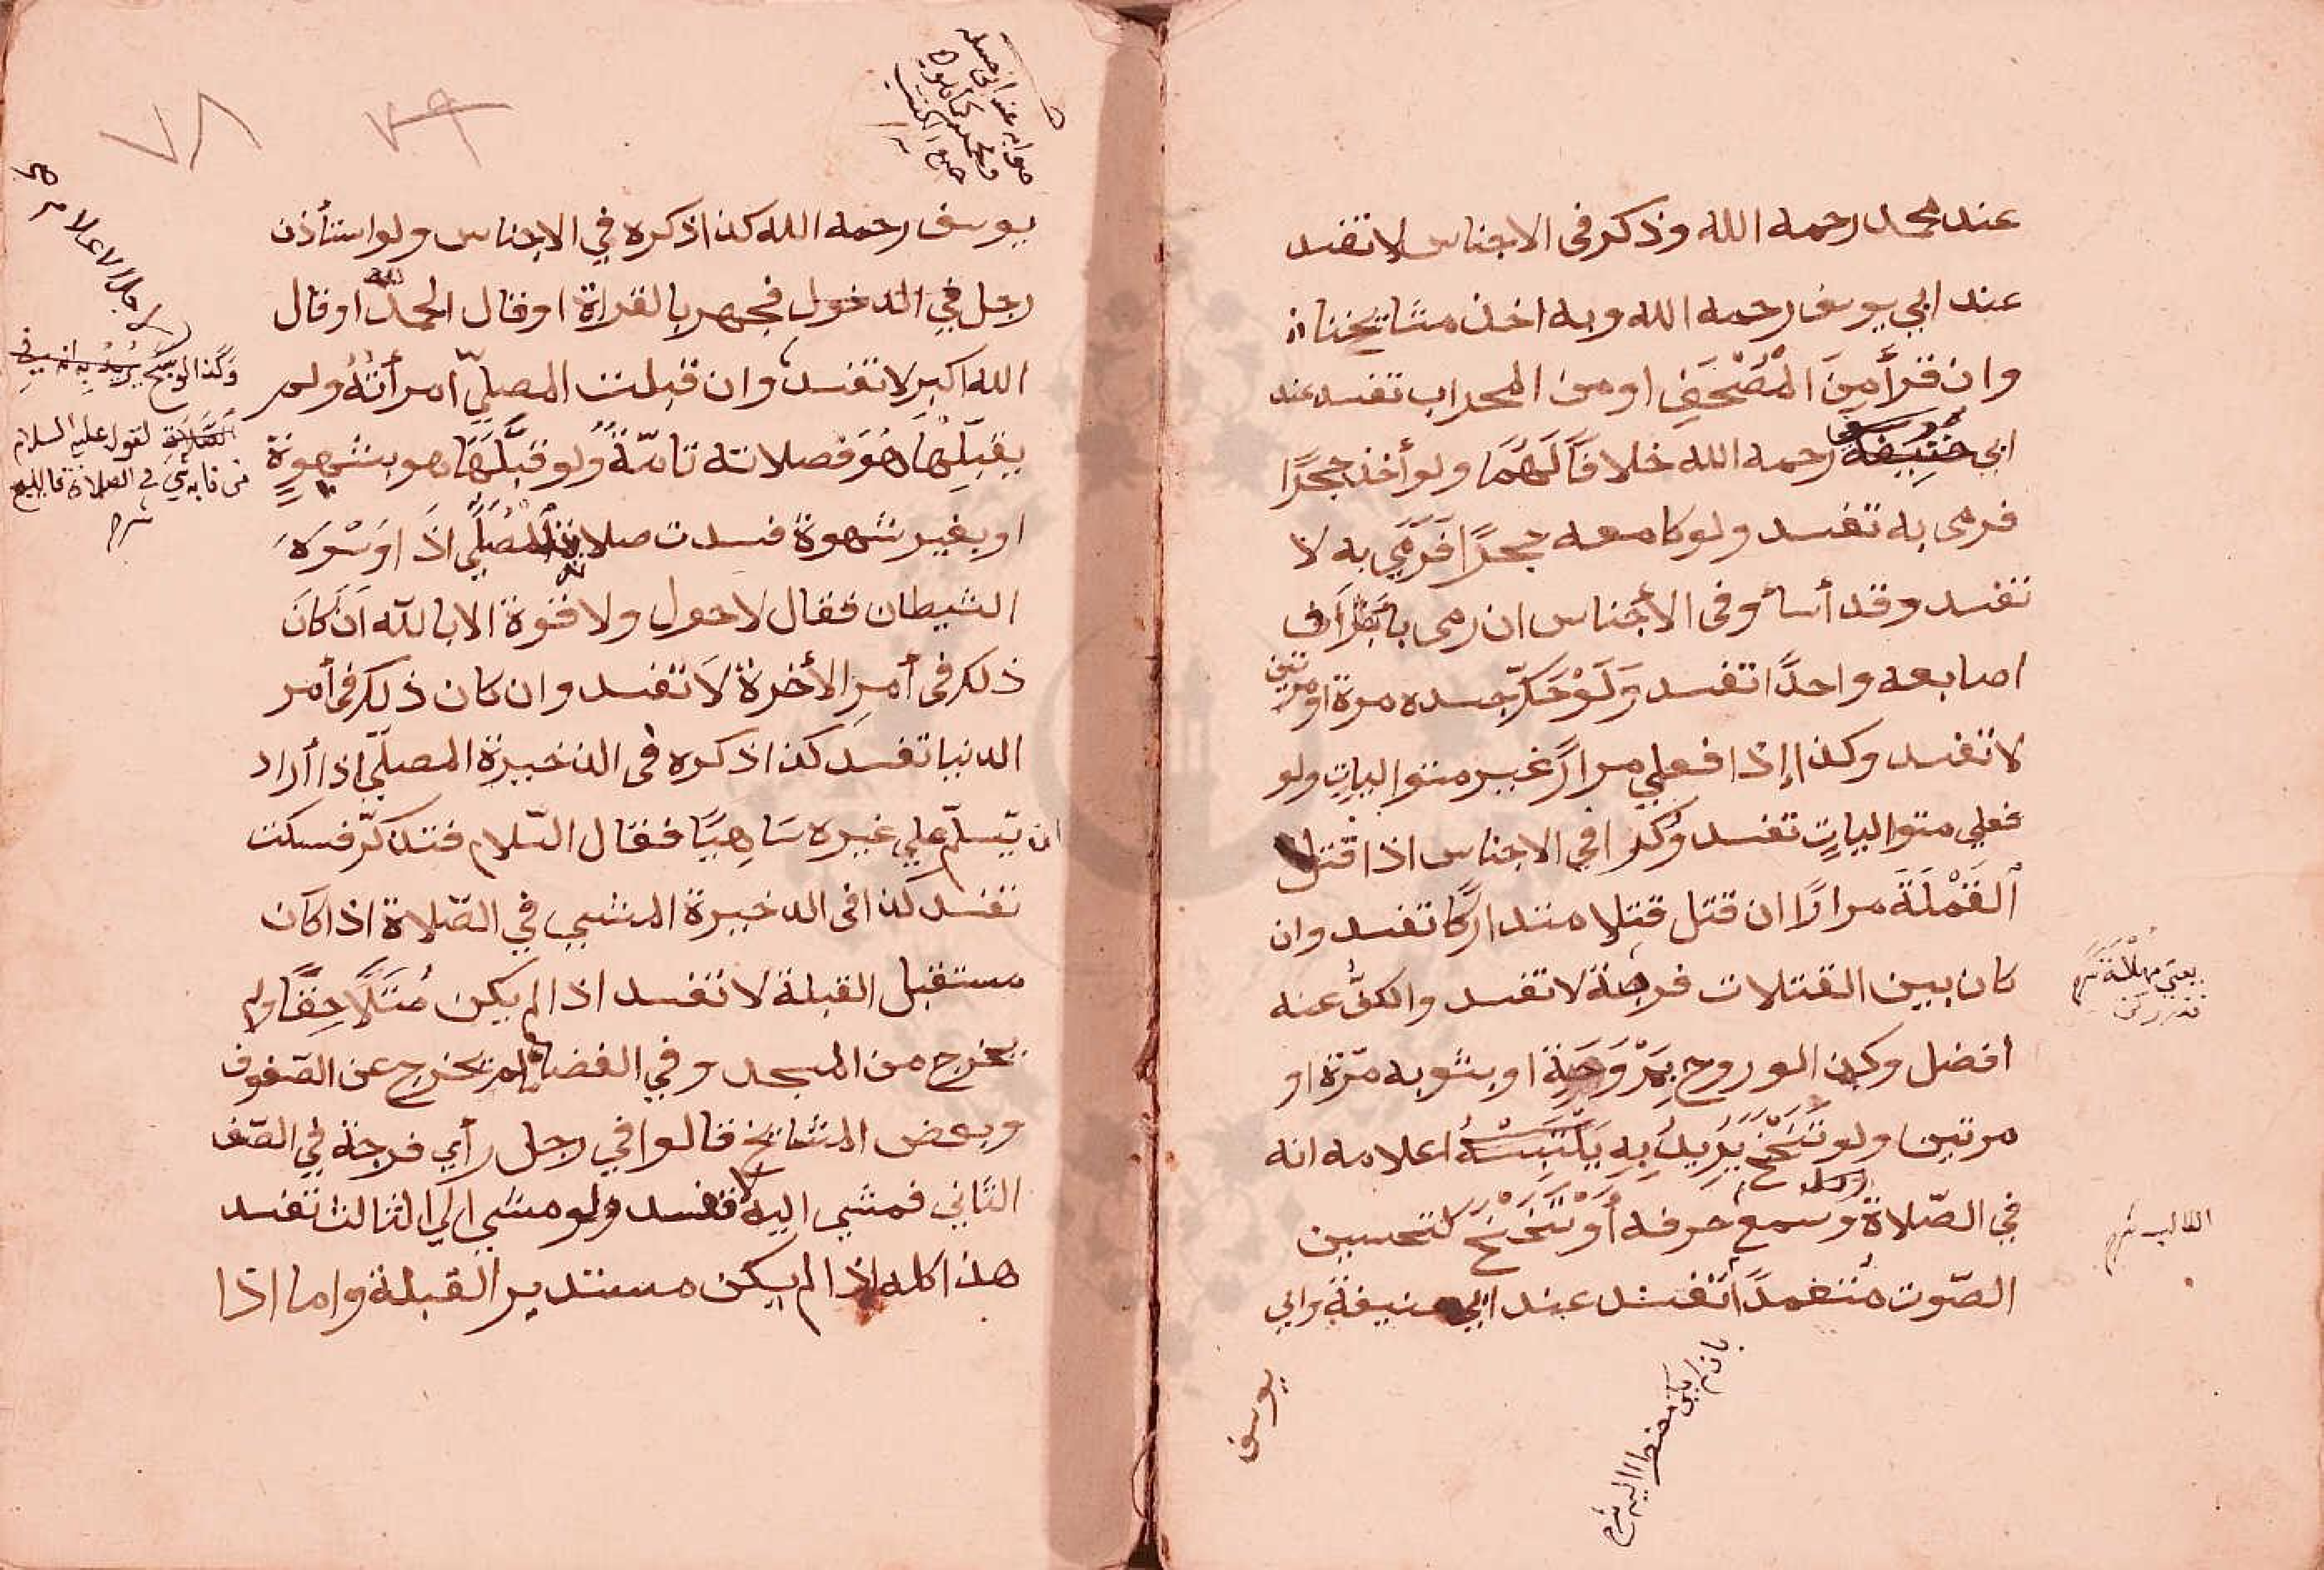 عند محمد رحمه الله وذكر فى الاجناس لا تفسد
عند ابي يوسف رحمه الله وبه اخذ مشايخنا
وان قرأ مِنَ الْمُصْحَفِ او من المحراب تفسد عند
ابى حَنِيفة رحمه الله خلافًا لَهُمَا ولو أخذ حجرًا
فرمى به تفسد ولو كا معه حجرًا فَرَمَي به لا
تفسد وقد أساء وفى الأجناس ان رمى باطراف
اصابعه واحدًا تفسد وَلَوْ حَكّ جسده مرة او مرتين
لا تفسد وكذا إذا فعلي مرارًا غير متواليات ولو
فعلي متوالياتٍ تفسد وكذا في الاجناس اذا قتل
اَلقَمْلَةَ مرارًا ان قتل قتلا متداركًا تفسد وان
كان بين القتلات فرجة لا تفسد والكفّ عنه
افضل وكذا لو روح بِمَرْوَحَةٍ او بثوبه مرّة او
مرتين ولو تَنَحْنَحَ يُرِيدُ بِهِ اعلامه انه
في الصّلاة وسمع حرفه أَوْ تَنَحْنَحَ لتحسين
الصّوت متعمدًا تفسد عند ابي حنيفة وابي
يوسف
القالب شرح
يوسف رحمه الله كذا ذكره في الاجناس ولو استأذن
رجل في الدخول فجهر بالقراة او قال الحمد لله او قال
الله اكبر لا تفسد وان قبلت المصلّي امرأتُهُ ولم
يقبّلِهْا هُوَ فصلاته تامّةٌ ولو قبَّلَهَا هو بشهوة
او بغير شهوة فسدت صلاته المُصَلِّي اذَا وَسْوَسَهُ
الشيطان فقال لا حول ولا قوة الا بالله اَنْ كَانَ
ذلك فى أمرِ الأخرة لَا تفسد وان كان ذلك فى أمر
الدنيا تفسد كذا ذكره فى الذخيرة المصلّي اذا أراد
ان يسلّم علي غيره سَاهِيًا فقال السّلام فتذكّر فسكت
تفسد كذا فى الدخيرة المشي في الصّلاة اذا كان
مستقبل القبلة لا تفسد اذا لم يكن مُتَلَاحِقًا ولم
يخرج من المسجد وفي الفضا ما لم يخرج عن الصّفوف
وبعض المشايخ قالوا في رجل رأي فرجة في الصّف
الثاني فمشي اليه لا تفسد ولو مشي الي الثالث تفسد
هذا كله اذا لم يكن مستدير القبلة واما اذا
٧٨
لقوله عليه السلام
من نابه شئ في الصلاة فاليسبح
شرح